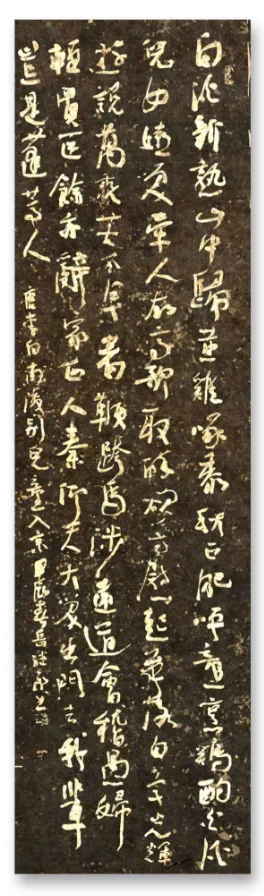 白酒新熟山中歸黄雞啄黍秋正肥呼童烹鷄酌白酒
兒女嬉笑牽人衣高歌取醉欲自慰起舞落日争光輝
游說萬乘苦不早著鞭跨馬涉遠道會稽愚婦
輕買臣餘亦辭家西入秦仰天大笑出門去我輩
豈是蓬蒿人 唐李白南陵别兒童入京 甲辰春